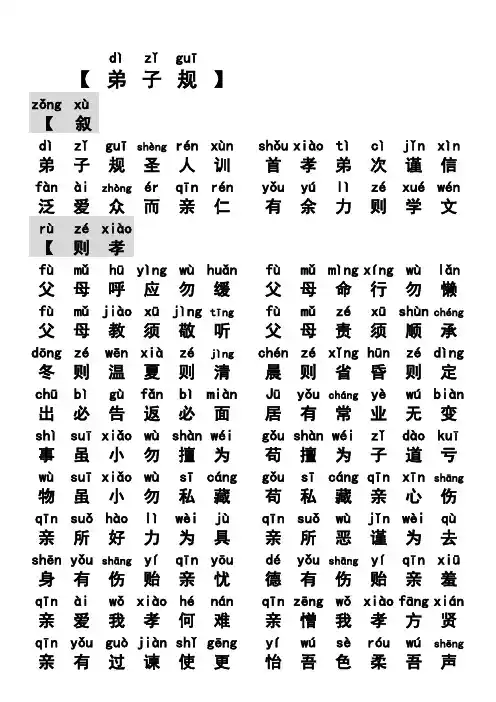 dì zǐ guī
【 弟 子 规 】
zǒng xù
【 叙
dì zǐ guī shèng rén xùn shǒu xiào tì cì jǐn xìn
弟 子 规 圣 人 训 首 孝 弟 次 谨 信
fàn ài zhòng ér qīn rén yǒu yú lì zé xué wén
泛 爱 众 而 亲 仁 有 余 力 则 学 文
rù zé xiào
【 则 孝
fù mǔ hū yìng wù huǎn fù mǔ mìng xíng wù lǎn
父 母 呼 应 勿 缓 父 母 命 行 勿 懒
fù mǔ jiào xū jìng tīng fù mǔ zé xū shùn chéng
父 母 教 须 敬 听 父 母 责 须 顺 承
dōng zé wēn xià zé jìng chén zé xǐng hūn zé dìng
冬 则 温 夏 则 清 晨 则 省 昏 则 定
chū bì gù fǎn bì miàn Jū yǒu cháng yè wú biàn
出 必 告 返 必 面 居 有 常 业 无 变
shì suī xiǎo wù shàn wéi gǒu shàn wéi zǐ dào kuī
事 虽 小 勿 擅 为 苟 擅 为 子 道 亏
wù suī xiǎo wù sī cáng gǒu sī cáng qīn xīn shāng
物 虽 小 勿 私 藏 苟 私 藏 亲 心 伤
qīn suǒ hào lì wèi jù qīn suǒ wù jǐn wèi qù
亲 所 好 力 为 具 亲 所 恶 谨 为 去
shēn yǒu shāng yí qīn yōu dé yǒu shāng yí qīn xiū
身 有 伤 贻 亲 忧 德 有 伤 贻 亲 羞
qīn ài wǒ xiào hé nán qīn zēng wǒ xiào fāng xián
亲 爱 我 孝 何 难 亲 憎 我 孝 方 贤
qīn yǒu guò jiàn shǐ gēng yí wú sè róu wú shēng
亲 有 过 谏 使 更 怡 吾 色 柔 吾 声